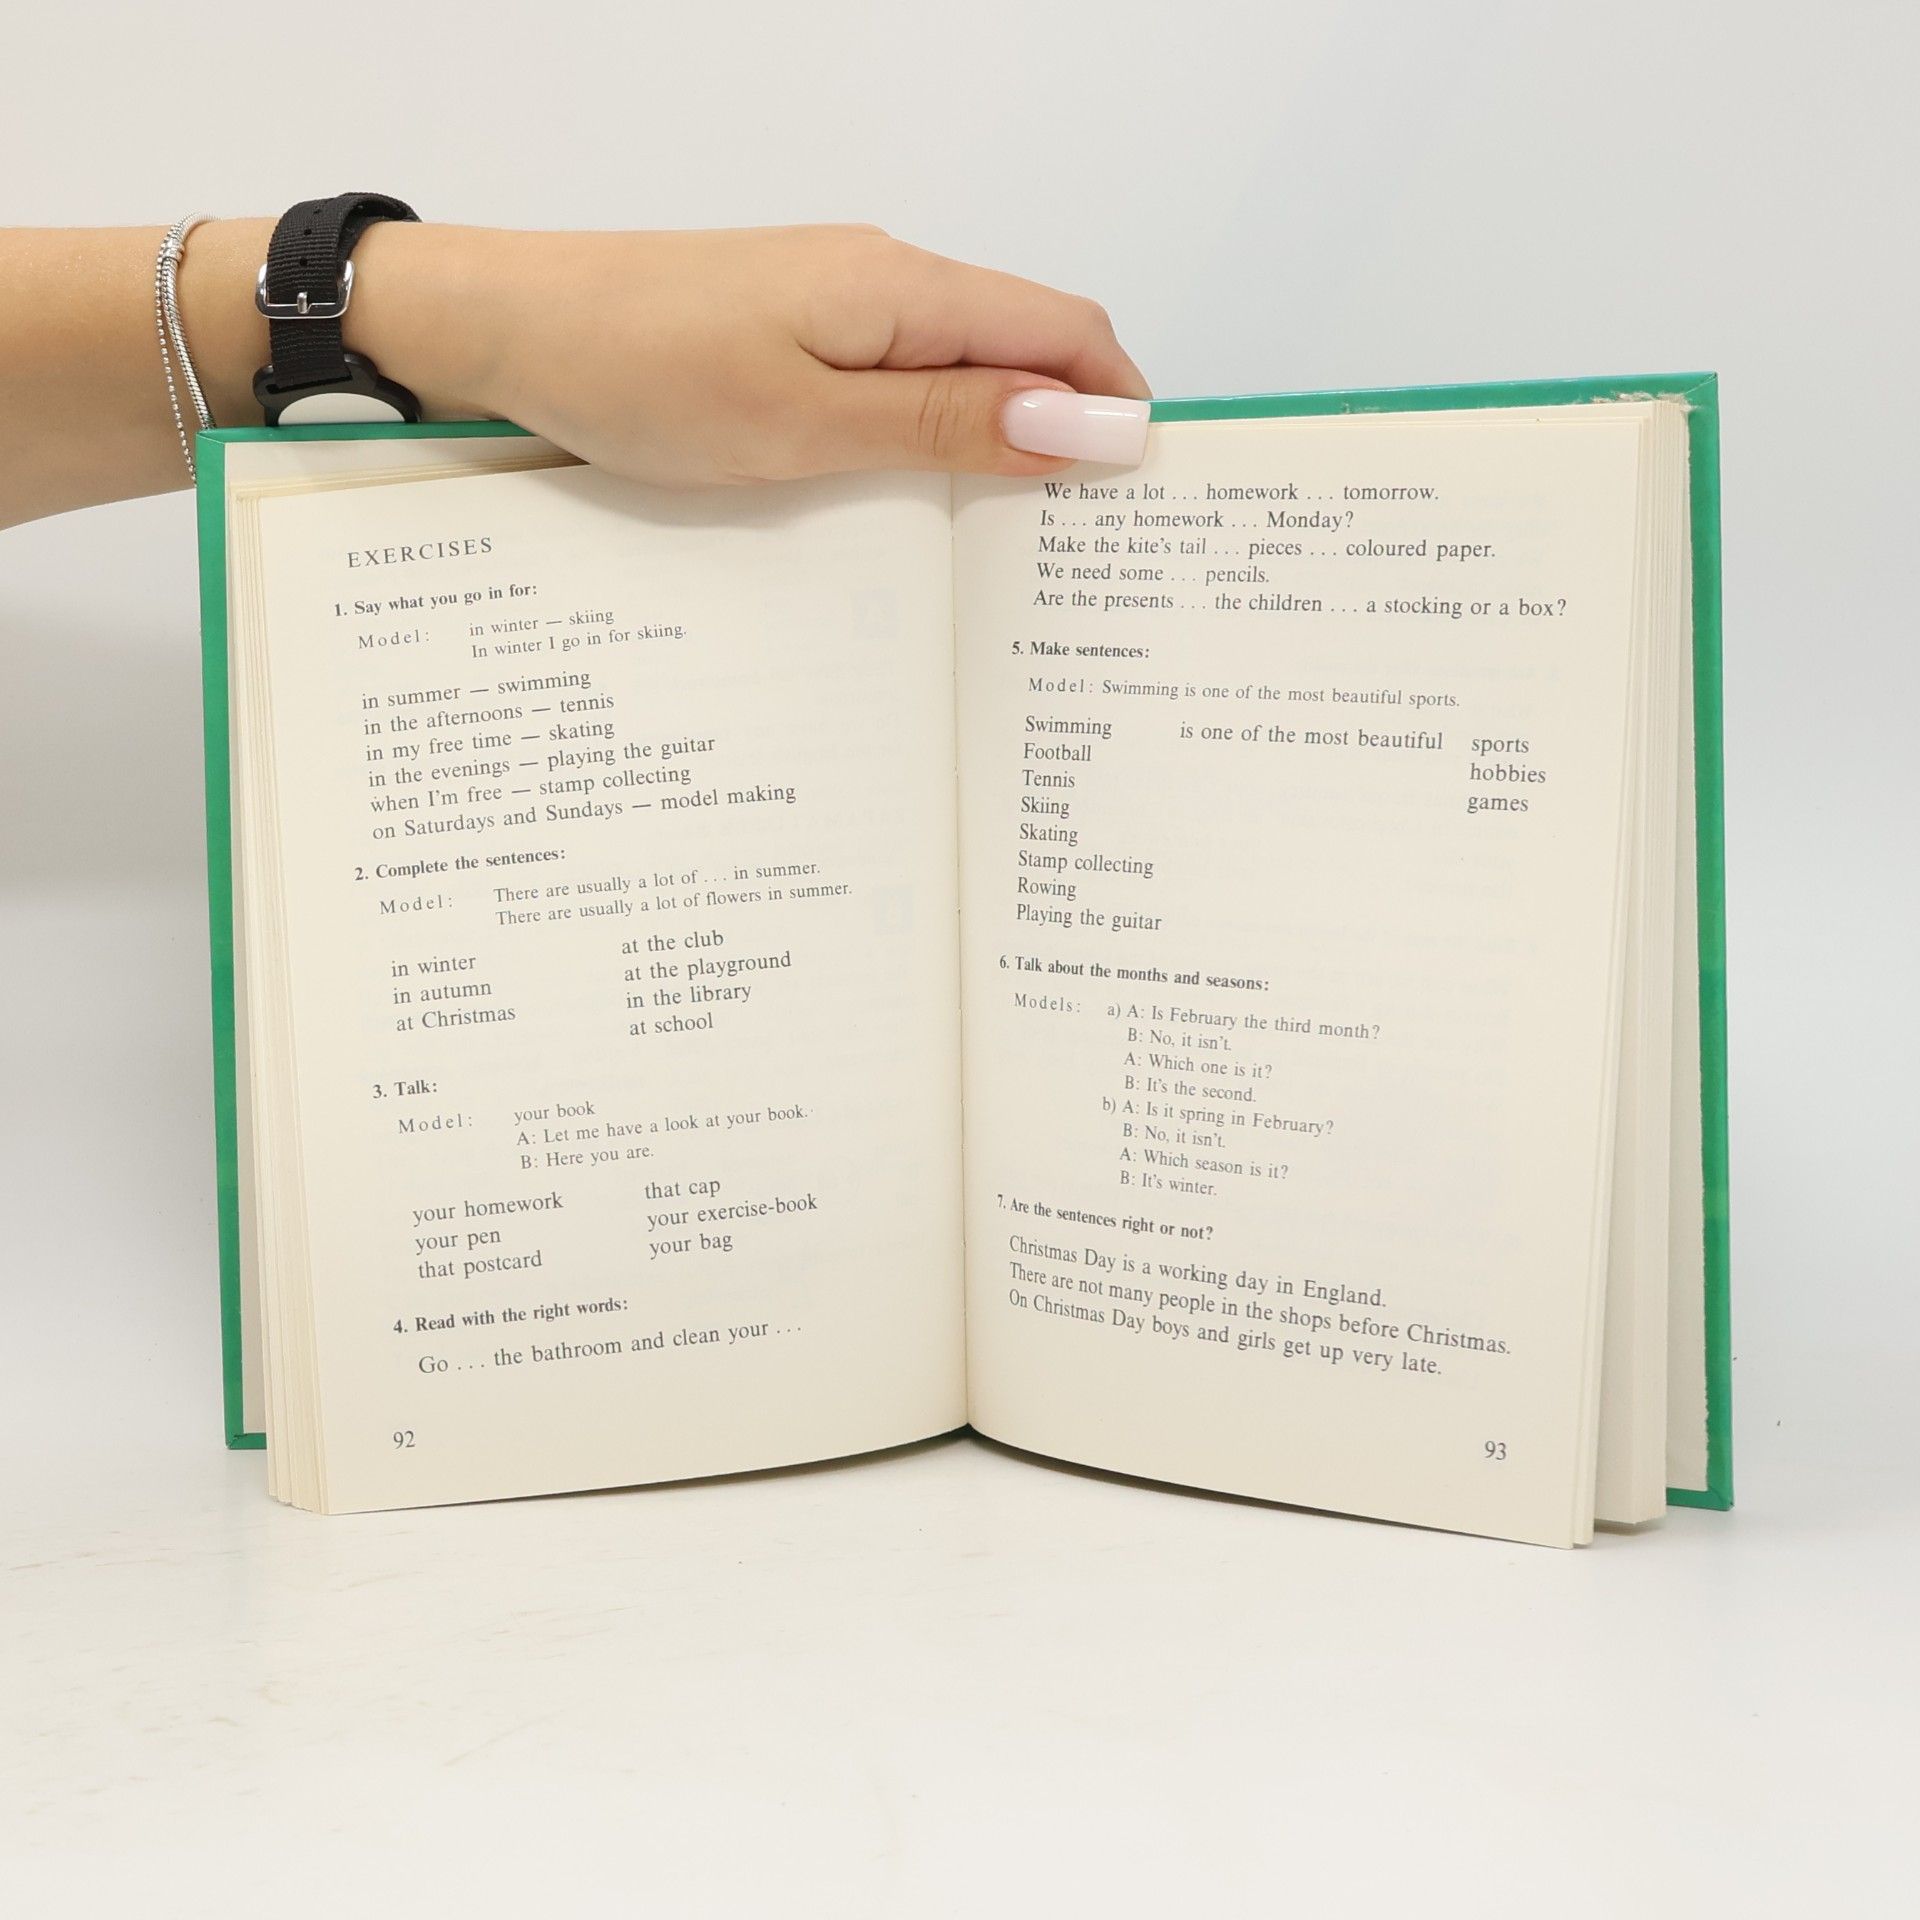 EXERCISES
1. Say what you go in for:
Model: in winter — skiing
In winter I go in for skiing.
in summer — swimming
in the afternoons — tennis
in my free time — skating
in the evenings — playing the guitar
when I'm free — stamp collecting
on Saturdays and Sundays — model making
2. Complete the sentences:
Model: There are usually a lot of . . . in summer.
There are usually a lot of flowers in summer.
in winter
in autumn
at Christmas
at the club
at the playground
in the library
at school
3. Talk:
Model: your book
A: Let me have a look at your book.
B: Here you are.
your homework
your pen
that postcard
that cap
your exercise-book
your bag
4. Read with the right words:
Go . . . the bathroom and clean your . . .
92
We have a lot . . . homework . . . tomorrow.
Is . . . any homework . . . Monday?
Make the kite's tail . . . pieces . . . coloured paper.
We need some . . . pencils.
Are the presents . . . the children . . . a stocking or a box?
5. Make sentences:
Model: Swimming is one of the most beautiful sports.
Swimming is one of the most beautiful sports
Football hobbies
Tennis games
Skiing
Skating
Stamp collecting
Rowing
Playing the guitar
6. Talk about the months and seasons:
Models: a) A: Is February the third month?
B: No, it isn't.
A: Which one is it?
B: It's the second.
b) A: Is it spring in February?
B: No, it isn't.
A: Which season is it?
B: It's winter.
7. Are the sentences right or not?
Christmas Day is a working day in England.
There are not many people in the shops before Christmas.
On Christmas Day boys and girls get up very late.
93